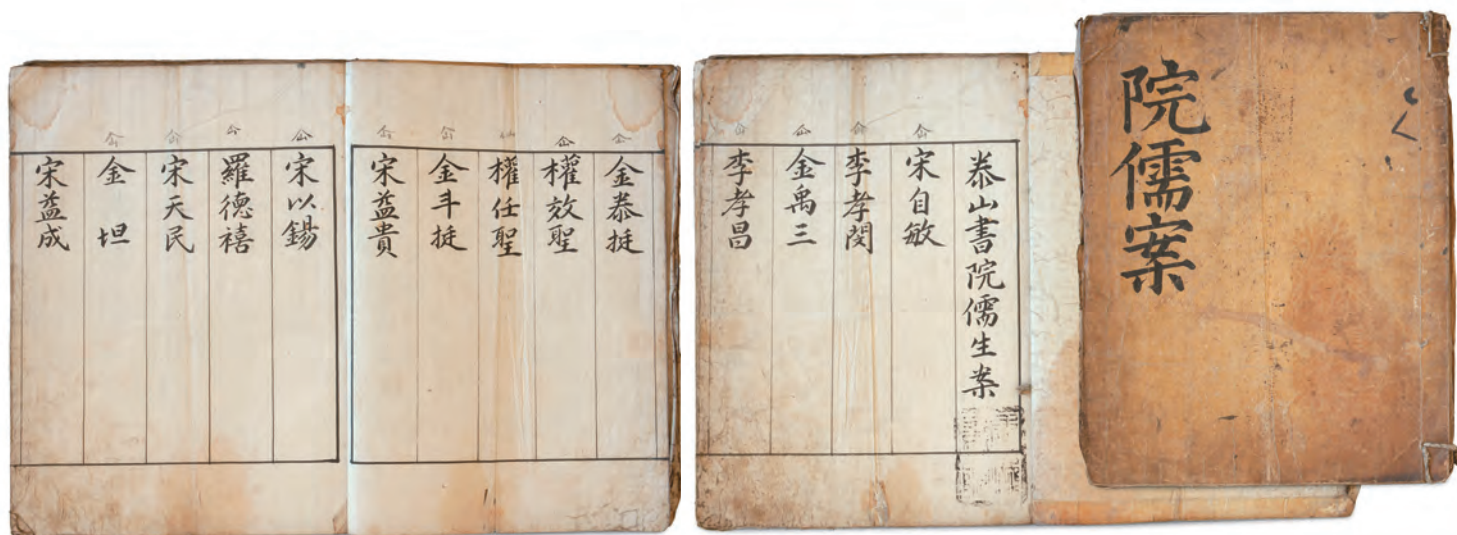 院儒案
泰山書院儒生案
宋自敏
李孝閔
金禹三
李孝昌
金泰挺
權效聖
權任聖
金斗挺
宋益貴
宋以錫
羅德禧
宋天民
金坦
宋益成